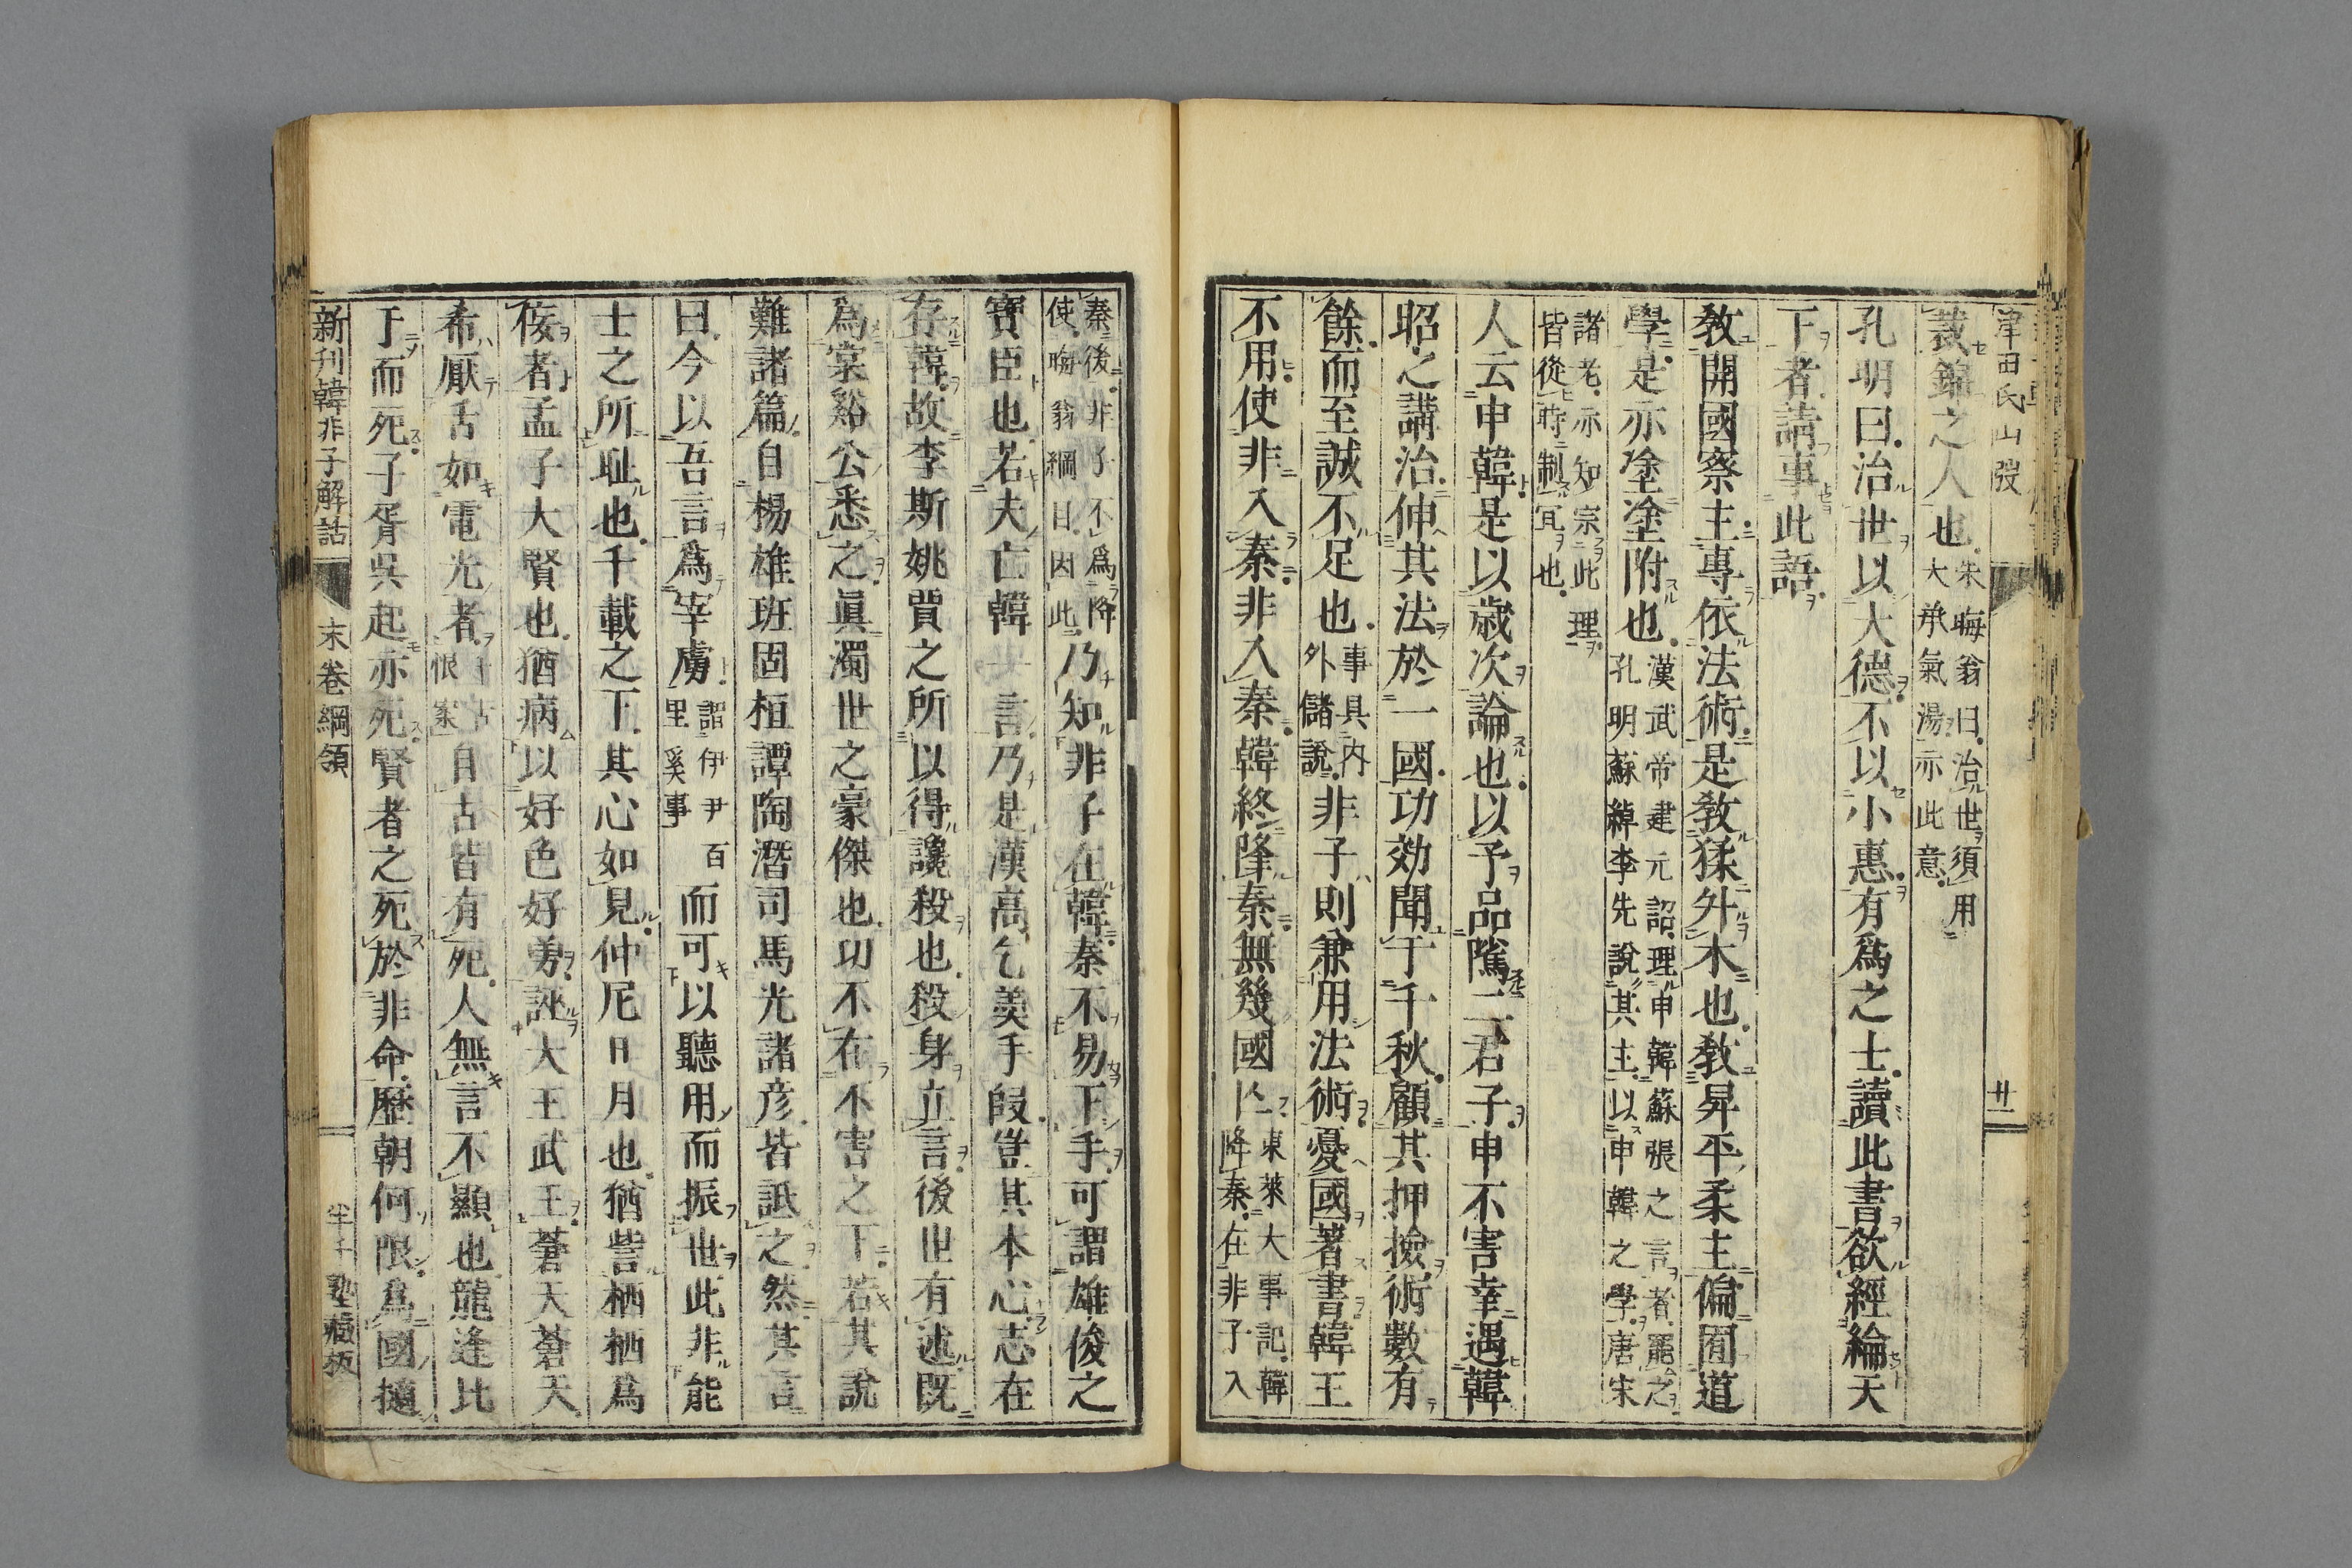 津田氏山發
廿一
裁錦之人也朱晦翁曰治世須用
大承氣湯亦此意
孔明曰治世以大德不以小惠有爲之士讀此書欲經綸天
下者請事此語
敎開國察主專依法術是敎猱升木也敎昇平柔主偏囿道
學是亦塗塗附也漢武帝建元詔理申韓蘇張之言者罷之
孔明蘇綽李先說其主以申韓之學唐宋
諸老亦知宗此理
皆從時制冝也
人云申韓是以歲次論也以予品隲二君子申不害幸遇韓
昭之講治伸其法於一國功効聞于千秋顧其押撿術數有
餘而至誠不足也事具內
外儲說非子則兼用法術憂國著書韓王
不用使非入秦非入秦韓終降秦無幾國亾東萊大事記韓
降秦在非子入
秦後非子不爲降
使晦翁綱目因此乃知非子在韓秦不易下手可謂雄俊之
寶臣也若夫亡韓 言乃是漢高乞羹手段豈其本心志在
存韓故李斯姚賈之所以得讒殺也殺身立言後世有述既
爲棠谿公悉之眞濁世之豪傑也功不在不害之下若其說
難諸篇自楊雄班固桓譚陶潛司馬光諸彥皆詆之然其言
曰今以吾言爲宰虜謂伊尹百
里奚事而可以聽用而振世此非能
士之所耻也千載之下其心如見仲尼日月也猶訾栖栖爲
侫者孟子大賢也猶病以好色好勇誣大王武王蒼天蒼天
希厭舌如電光者
恨案自古皆有死人無言不顯也龍逢比
于而死子胥吳起亦死賢者之死於非命歷朝何限爲國擿
新刊韓非子解詁
末卷綱領
塾藏板